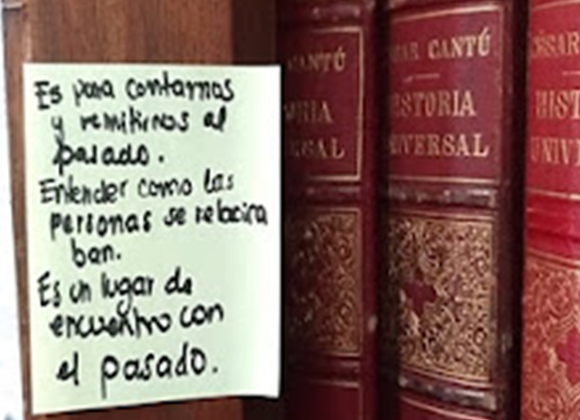 Es para contarnos
y remitirnos al
pasado.
Entender como las
personas se relaciona
ban.
Es un lugar de
encuentro con
el pasado.
CANTÚ
ORIA
RSAL
SAR CANTÚ
ISTORIA
IVERSAL
CÉSAR
HIST
UNIV